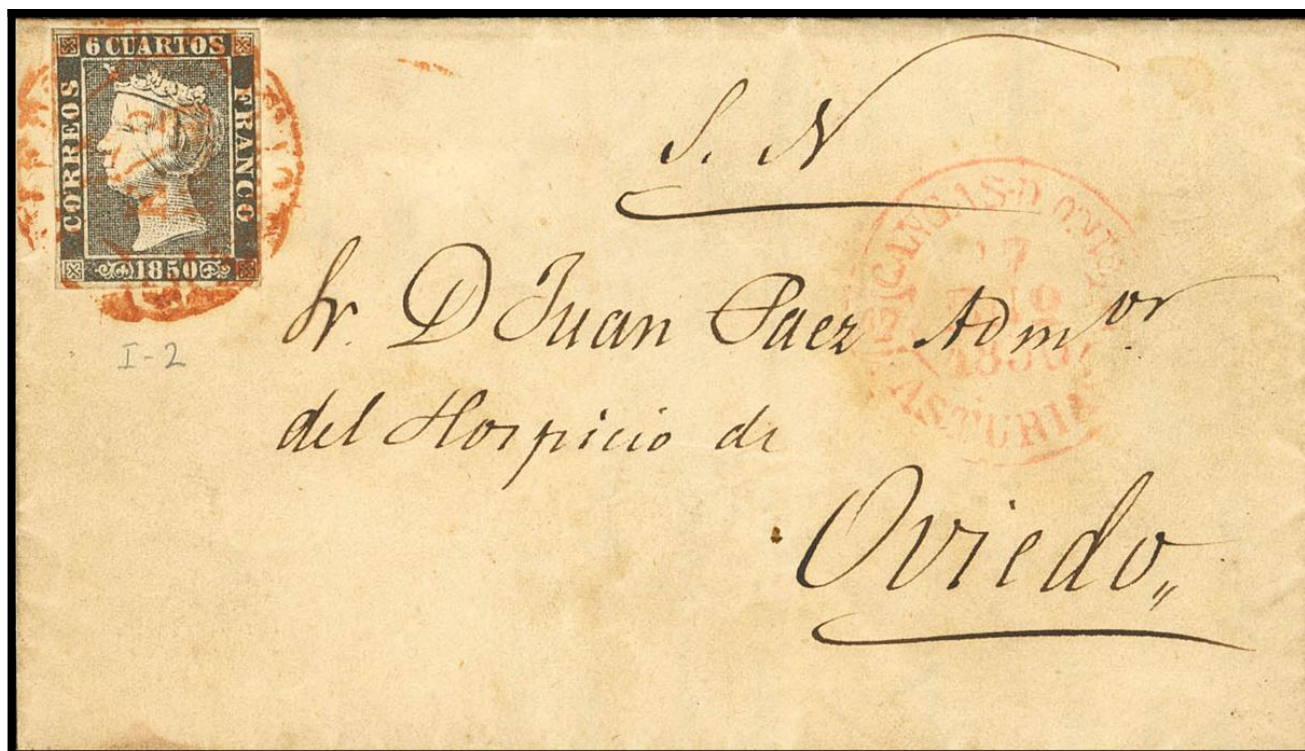 6 CUARTOS
CORREOS
FRANCO
1850
I-2
S. N
CANGAS-D-ONIS
17
1850
ASTURIAS
Sr. D Juan Paez Admor.
del Hospicio de
Oviedo,,